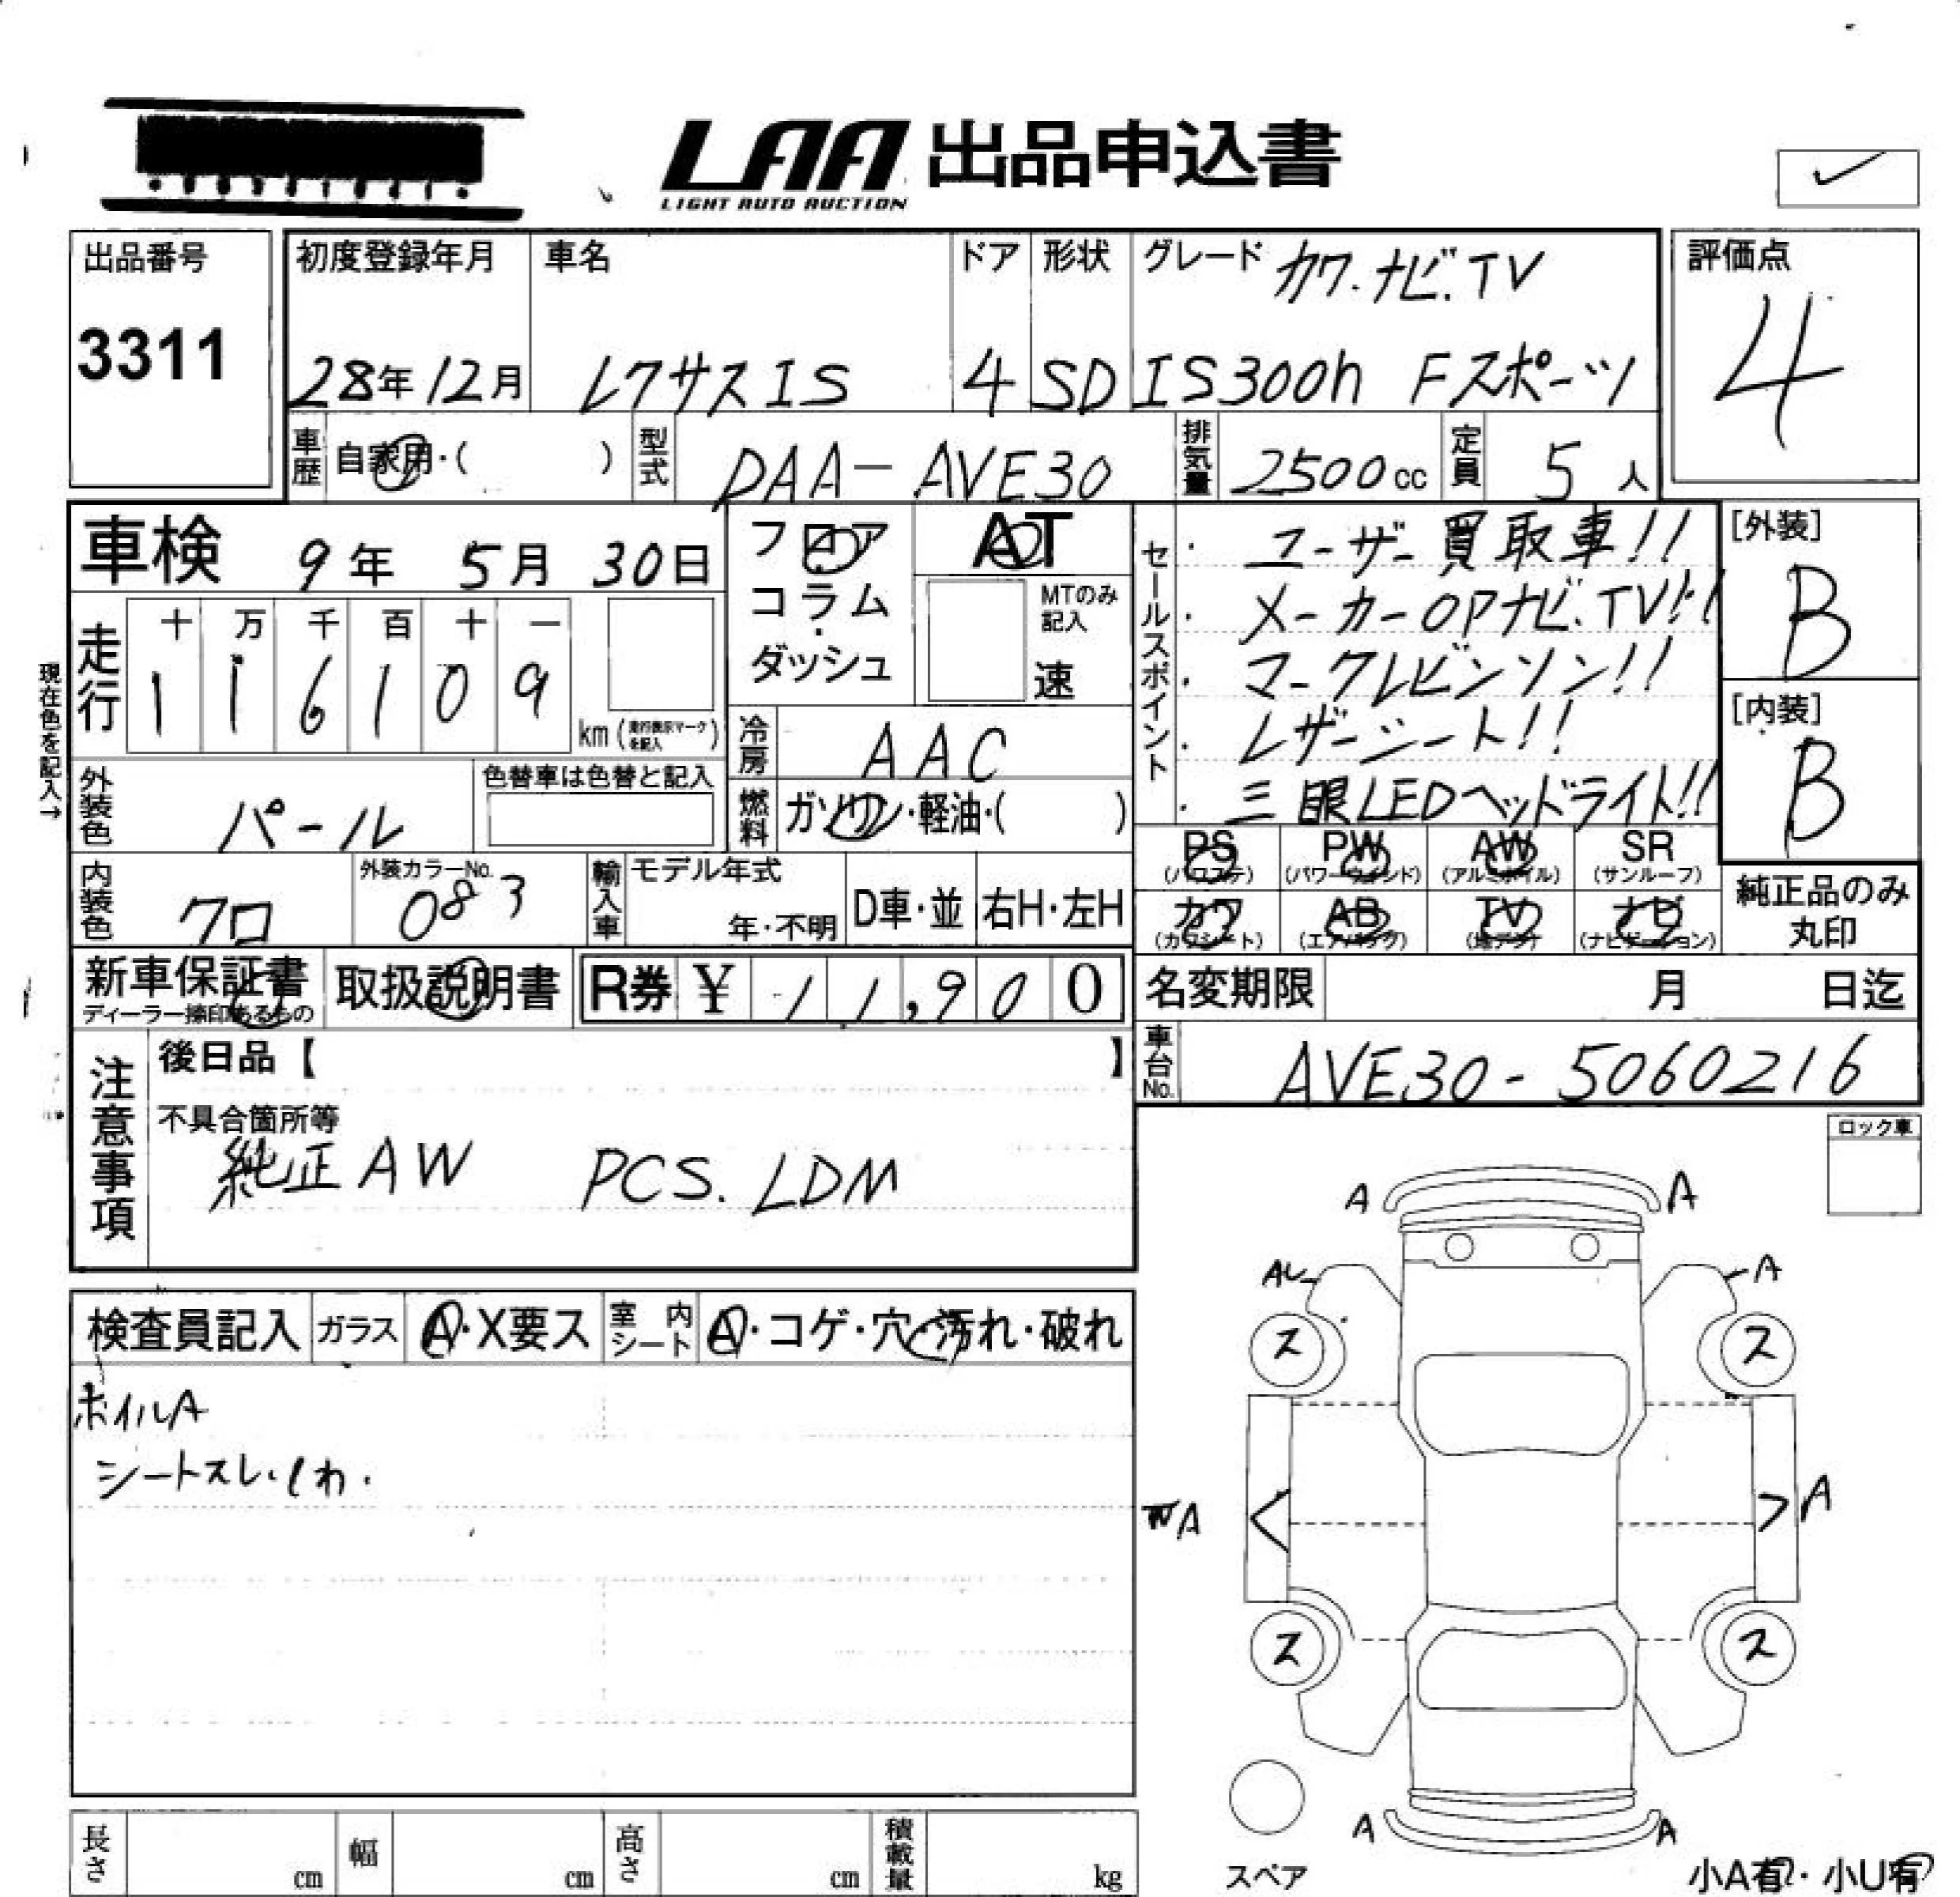 LAA 出品申込書
LIGHT AUTO AUCTION
出品番号
3311
初度登録年月
28年12月
車名
レクサスIS
ドア
4
形状
SD
グレード カワ.ナビ.TV
IS300h Fスポーツ
評価点
4
車歴 自家用・( )
型式 DAA-AVE30
排気量 2500cc
定員 5人
車検 9年 5月 30日
現在色を記入→
走行
十 万 千 百 十 一
1 1 6 1 0 9
km(走行表示マークを記入)
フロア
コラム
・
ダッシュ
AT
MTのみ記入
速
冷房 AAC
燃料 ガソリン・軽油・( )
外装色 パール
色替車は色替と記入
内装色 クロ
外装カラーNo. 083
輸入車
モデル年式
年・不明
D車・並
右H・左H
セールスポイント
・ユーザー買取車!!
・メーカーOPナビ.TV!!
・マークレビンソン!!
・レザーシート!!
・三眼LEDヘッドライト!!
[外装]
B
[内装]
B
PS (パワステ)
PW (パワーウィンド)
AW (アルミホイル)
SR (サンルーフ)
カワ (カワシート)
AB (エアバック)
TV (地デジ)
ナビ (ナビゲーション)
純正品のみ
丸印
新車保証書
ディーラー捺印あるもの
取扱説明書
R券 ¥ 11,900
名変期限 月 日迄
車台No. AVE30-5060216
注意事項
後日品【 】
不具合箇所等
純正AW PCS. LDM
ロック車
検査員記入
ガラス A・X要ス
室内シート A・コゲ・穴・汚れ・破れ
ホイルA
シートスレ.しわ.
A A
A
ス ス
A A
ス ス
A A
スペア
小A有・小U有
長さ cm
幅 cm
高さ cm
積載量 kg